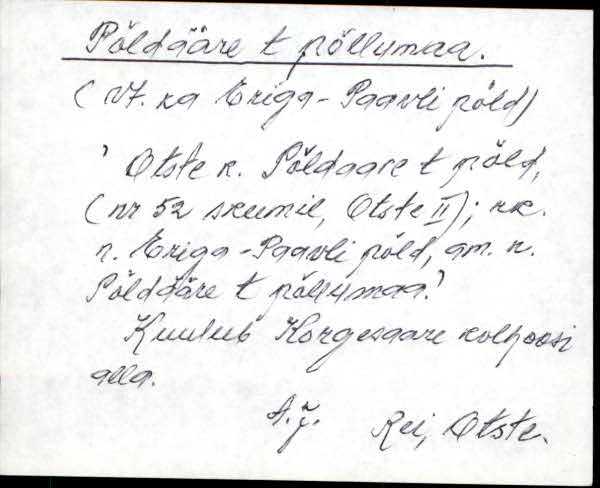 Põldääre t põllumaa.
(vt. ka Eriga-Paavli põld)
' Otste k. Põldaare t põld,
(nr 52 skeemil, Otste II); rk.
n. Eriga-Paavli põld, am. n.
Põldääre t põllumaa.'
Kuulub Korgesaare kolhoosi
alla.
A.J. Rei, Otste.